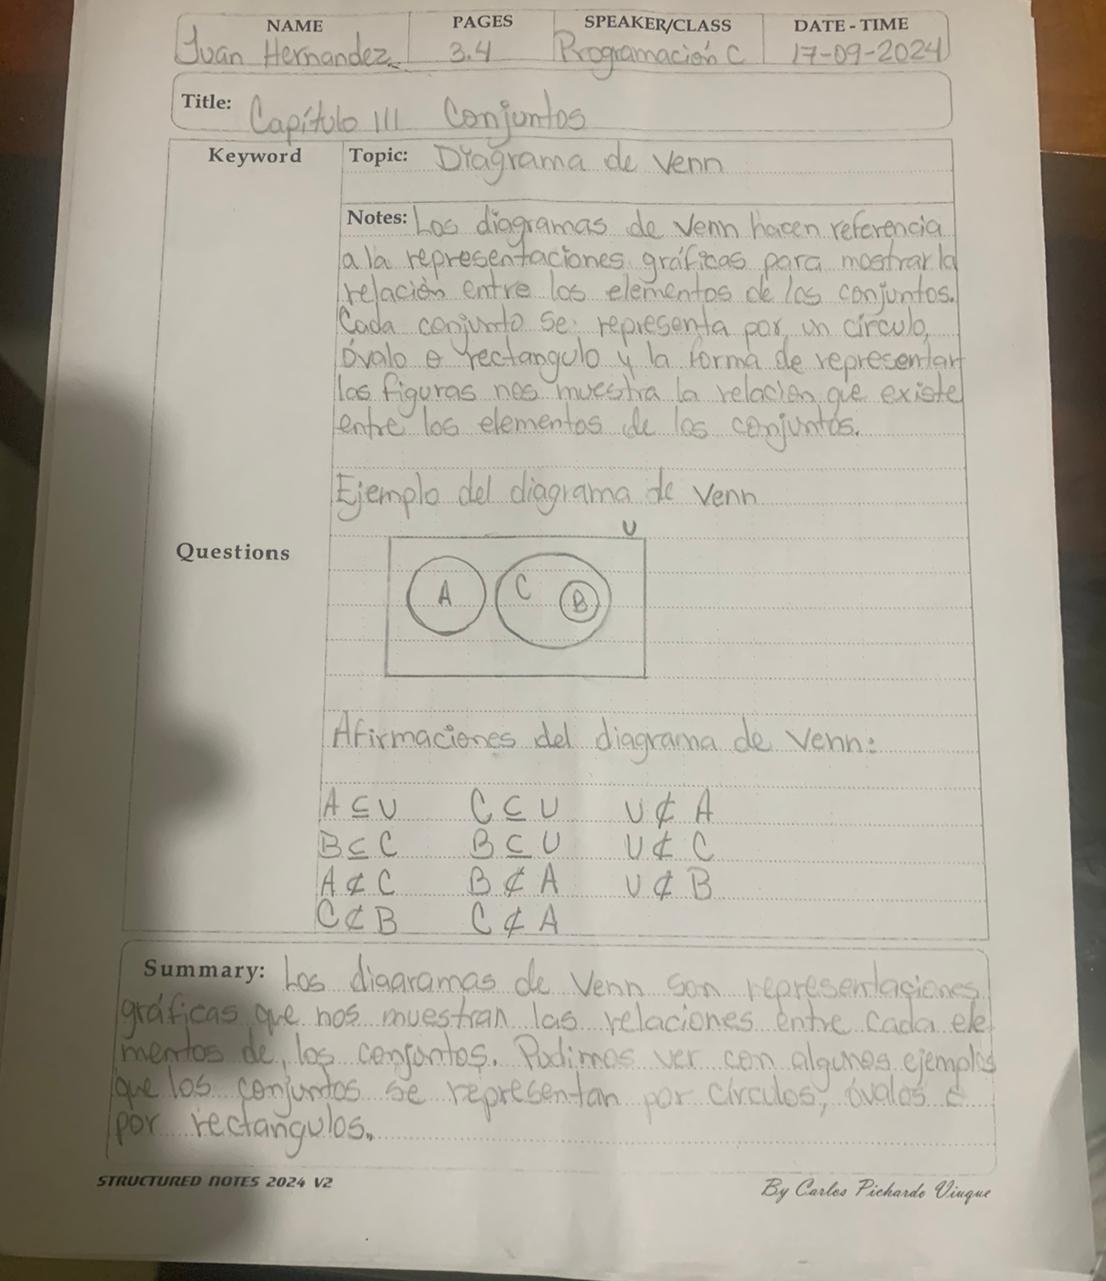 NAME PAGES SPEAKER/CLASS DATE - TIME
Juan Hernandez 3.4 Programación C 17-09-2024
Title: Capítulo III Conjuntos
Keyword Topic: Diagrama de Venn
Notes: Los diagramas de Venn hacen referencia
a la representaciones gráficas para mostrar la
relación entre los elementos de los conjuntos.
Cada conjunto se representa por un círculo,
óvalo o rectangulo y la forma de representar
las figuras nos muestra la relacion que existe
entre los elementos de los conjuntos.
Ejemplo del diagrama de Venn
U
Questions
A C B
Afirmaciones del diagrama de Venn:
A ⊆ U C ⊆ U U ⊄ A
B ⊆ C B ⊆ U U ⊄ C
A ⊄ C B ⊄ A U ⊄ B
C ⊄ B C ⊄ A
Summary: Los diagramas de Venn son representaciones
gráficas que nos muestran las relaciones entre cada ele
mentos de los conjuntos. Pudimos ver con algunos ejemplos
que los conjuntos se representan por círculos, óvalos o
por rectangulos.
STRUCTURED NOTES 2024 V2
By Carlos Pichardo Viuque